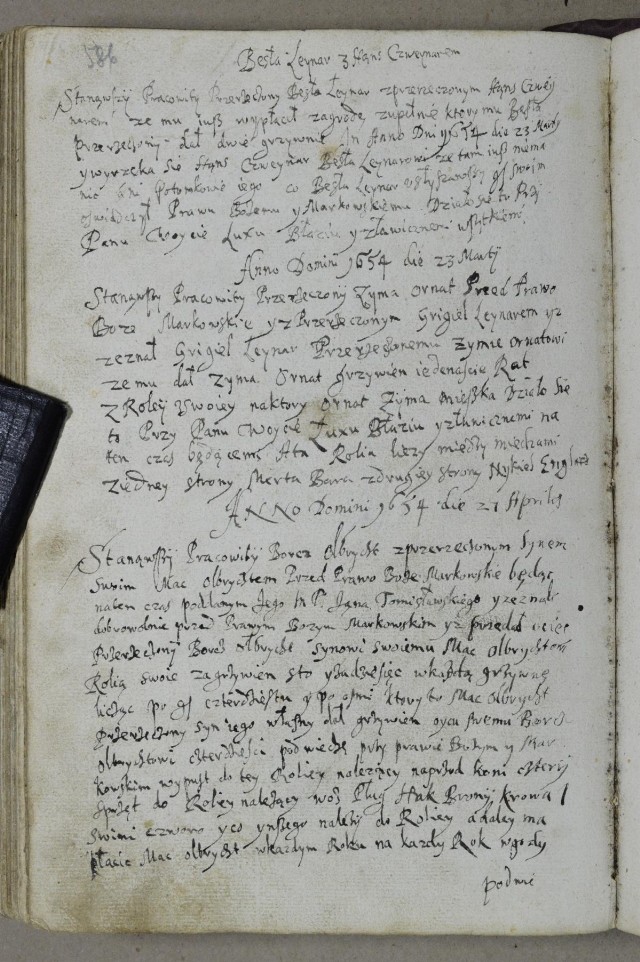 586
Besta Leynar z Hans Czweynarem
Stanąwszy Pracowity Przerzeczony Besta Leynar zprzerzeczonym Hans Czwey
narem ze mu iusz wypłacił zagrodę zupełnie ktorymu Besta
przerzeczony dał dwie grzywnie In Anno Dni 1654 die 23 Marty
y wyrzeka się Hans Czweynar Besta Leynarowi ze tam iusz niema
nic ani Potomkowie iego co Besta Leynar
oswiadczył Prawu Bożemu y Markowskiemu Działo się to Przy
Panu Woycie Luxu Błaziu y zławicznemi wszytkiemi
Anno Domini 1654 die 23 Marty
Stanąwszy Pracowity Przerzeczony Zyma Ornat Przed Prawo
Boże Markowskie y z Przerzeczonym Grigiel Leynarem yz
zeznał Grigiel Leynar Przerzeczonemu Zymie Ornatowi
ze mu dał Zyma Ornat grzywien iedenascie Rat
z Roley swoiey naktory Ornat Zyma mieszka Działo się
to Przy Panu Woycie Luxu Błaziu y zławicznemi na
ten czas będącemi Ata Rolia lezy między miedzami
ziedney strony Merta Bara zdrugiey strony Nykiel
ANNO Domini 1654 die 21 Aprilis
Stanąwszy Pracowity Borcz Olbrycht zprzerzeczonym Synem
Swoim Mac Olbrychtem Przed Prawo Boże Markowskie będąc
naten czas poddanym Jego M P. Jana Tomisławskiego y zeznał
dobrowolnie przed Prawym Bozym Markowskim yz przedał ociec
Przerzeczony Borcz Olbrycht synowi swoiemu Mac Olbrychtowi
Rolią swoie za grzywien sto wkażdą grzywnę
licząc po gr czterdziestu y po osmi ktory to Mac Olbrycht
Przerzeczony syn iego własny dał grzywien oycu swemu Borcz
Olbrychtowi czterdzieści podwiechę przy prawie Bożym y Mar
kowskim wypust do tey Roliey należący naprzod koni cztery
Sprzęt do Roliey należący woz Pług Hak Brony krowa 1
Swini czworo y co ynszego należy do Roliey adaley ma
płacic Mac Olbrycht wkażdym Roku na kazdy Rok wgody
podwie